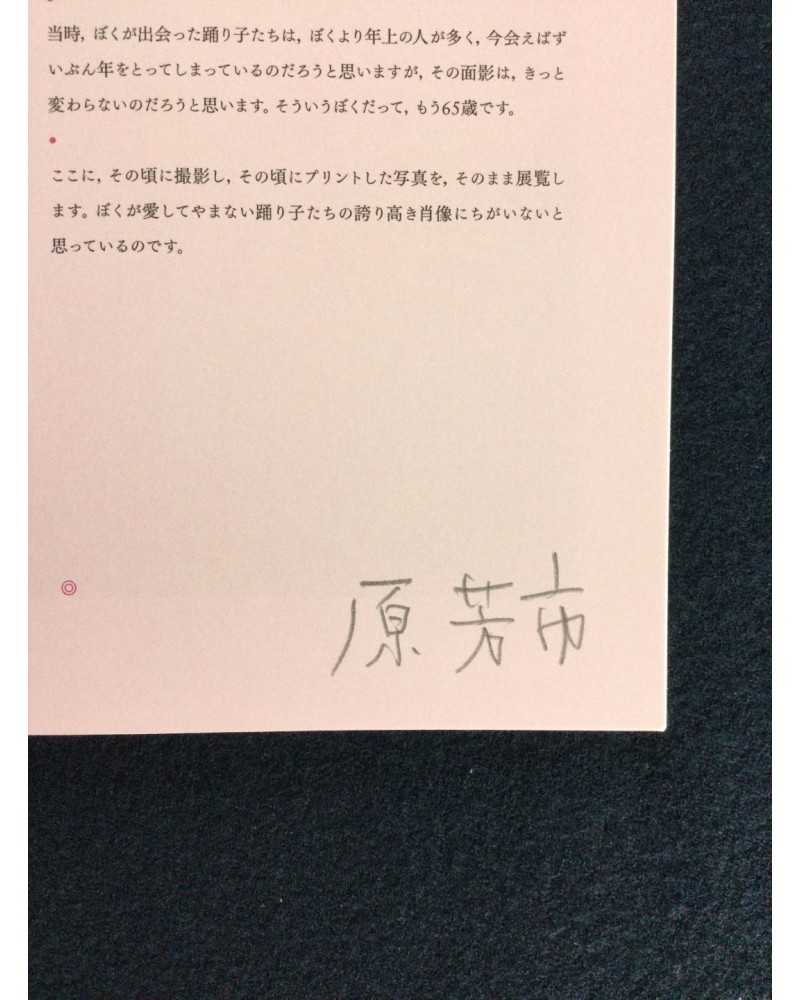 当時，ぼくが出会った踊り子たちは，ぼくより年上の人が多く，今会えばず
いぶん年をとってしまっているのだろうと思いますが，その面影は，きっと
変わらないのだろうと思います。そういうぼくだって，もう65歳です。
ここに，その頃に撮影し，その頃にプリントした写真を，そのまま展覧し
ます。ぼくが愛してやまない踊り子たちの誇り高き肖像にちがいないと
思っているのです。
原芳市